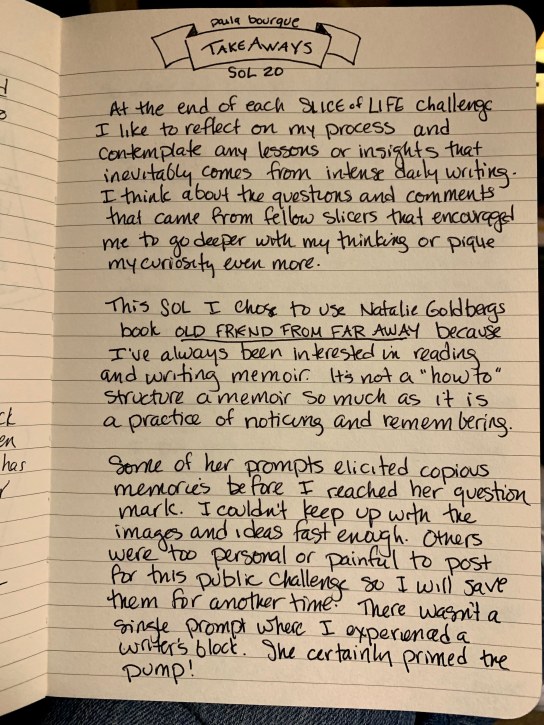 paula bourque
TAKEAWAYS
SOL 20
At the end of each SLICE of LIFE challenge
I like to reflect on my process and
contemplate any lessons or insights that
inevitably comes from intense daily writing.
I think about the questions and comments
that came from fellow slicers that encouraged
me to go deeper with my thinking or pique
my curiosity even more.
This SOL I chose to use Natalie Goldbergs
book OLD FRIEND FROM FAR AWAY because
I've always been interested in reading
and writing memoir. It's not a "how to"
structure a memoir so much as it is
a practice of noticing and remembering.
Some of her prompts elicited copious
memories before I reached her question
mark. I couldn't keep up with the
images and ideas fast enough. Others
were too personal or painful to post
for this public challenge so I will save
them for another time. There wasn't a
single prompt where I experienced a
writer's block. She certainly primed the
pump!
en
has